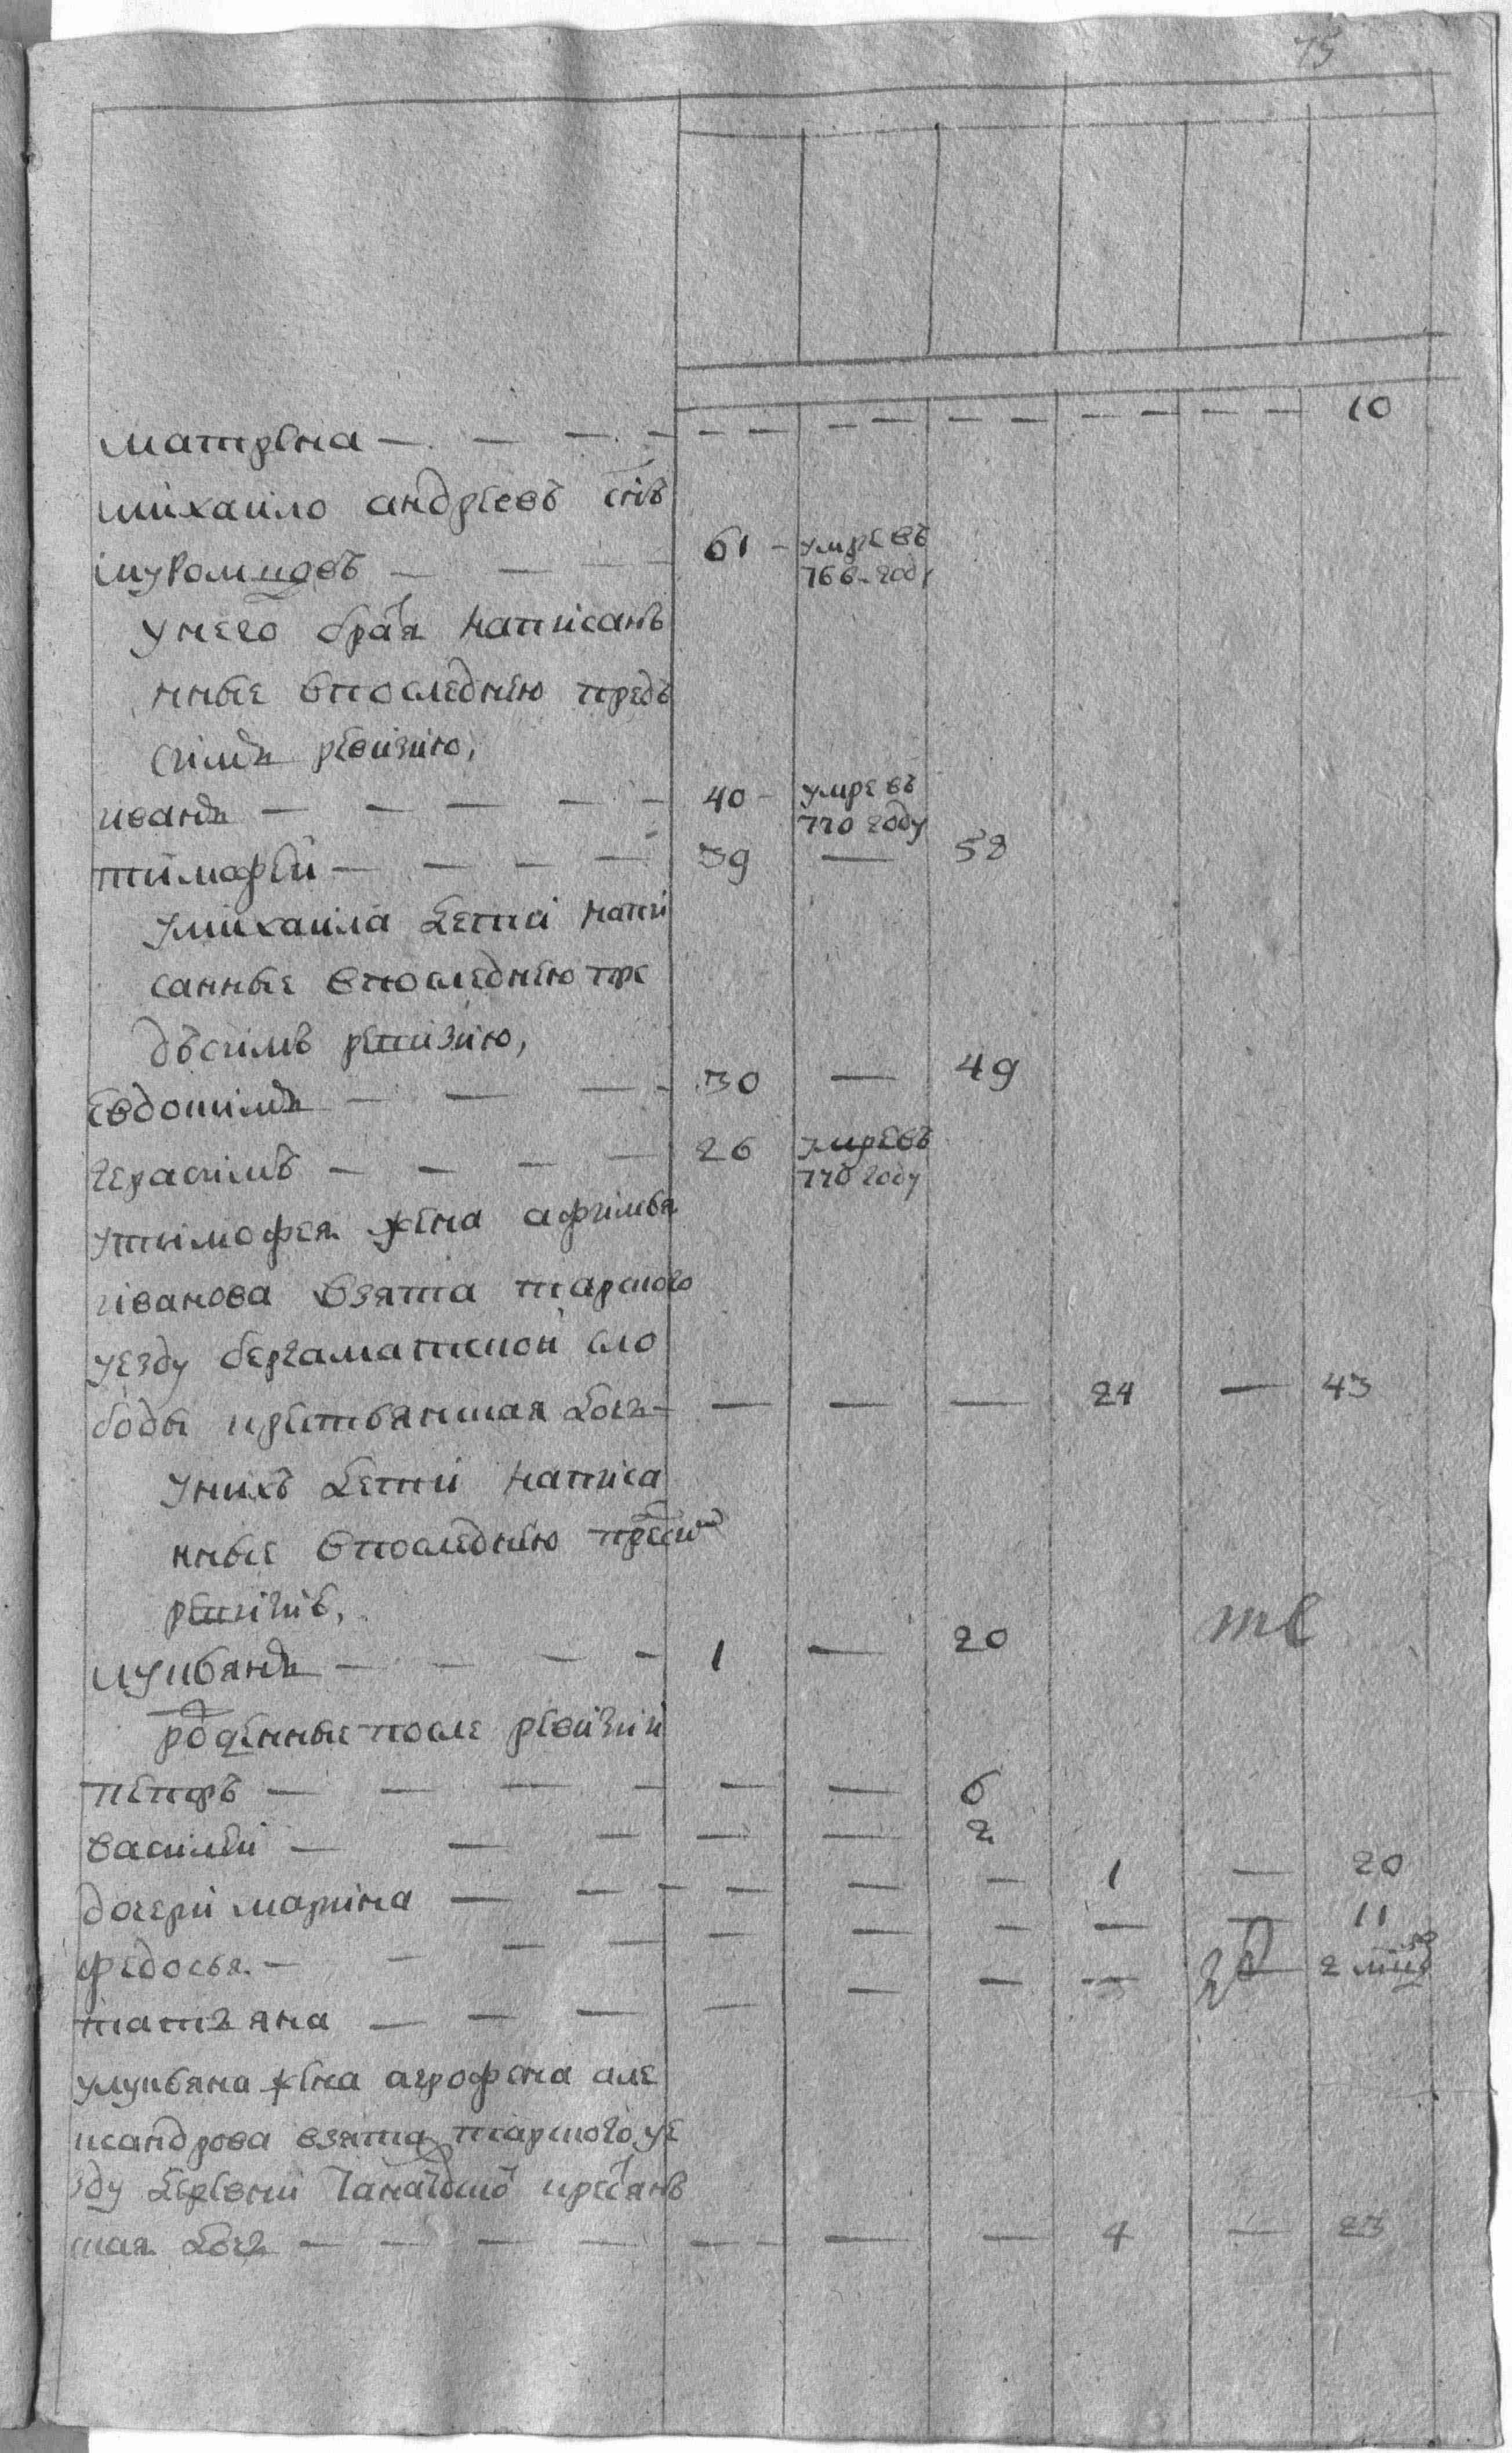 75
матрена — — — — — — — — — — — — — 10
михаило андреевъ снъ
шуколицовъ — — — 61 - умре въ
766 году
унего братя написанъ
нные впоследнею предъ
симъ ревизию,
иванъ — — — — — 40 - умре въ
770 году
тимофей — — — — 39 — 58
умихаила дети напи
санные впоследнею пре
дъсимъ ревизию,
евдокимъ — — — — 30 — 49
герасимъ — — — — 26 умре въ
770 году
утимофея жена афимья
иванова взята тарского
уезду бергаматской сло
боды крестьянская дочь — — — — 24 — 43
унихъ дети написа
нные впоследнею пресим
ревизие,
лукьянъ — — — — 1 — 20
роденные после ревизии
петръ — — — — — — 6
василей — — — — — 2
дочери марина — — — — — — 1 — 20
федосья — — — — — — — — — 11
татьяна — — — — — — — 2
улукьяна жена агрофена але
ксандрова взята тарского уе
зду деревни крестьянъ
ская дочь — — — — — — — — 4 — 23